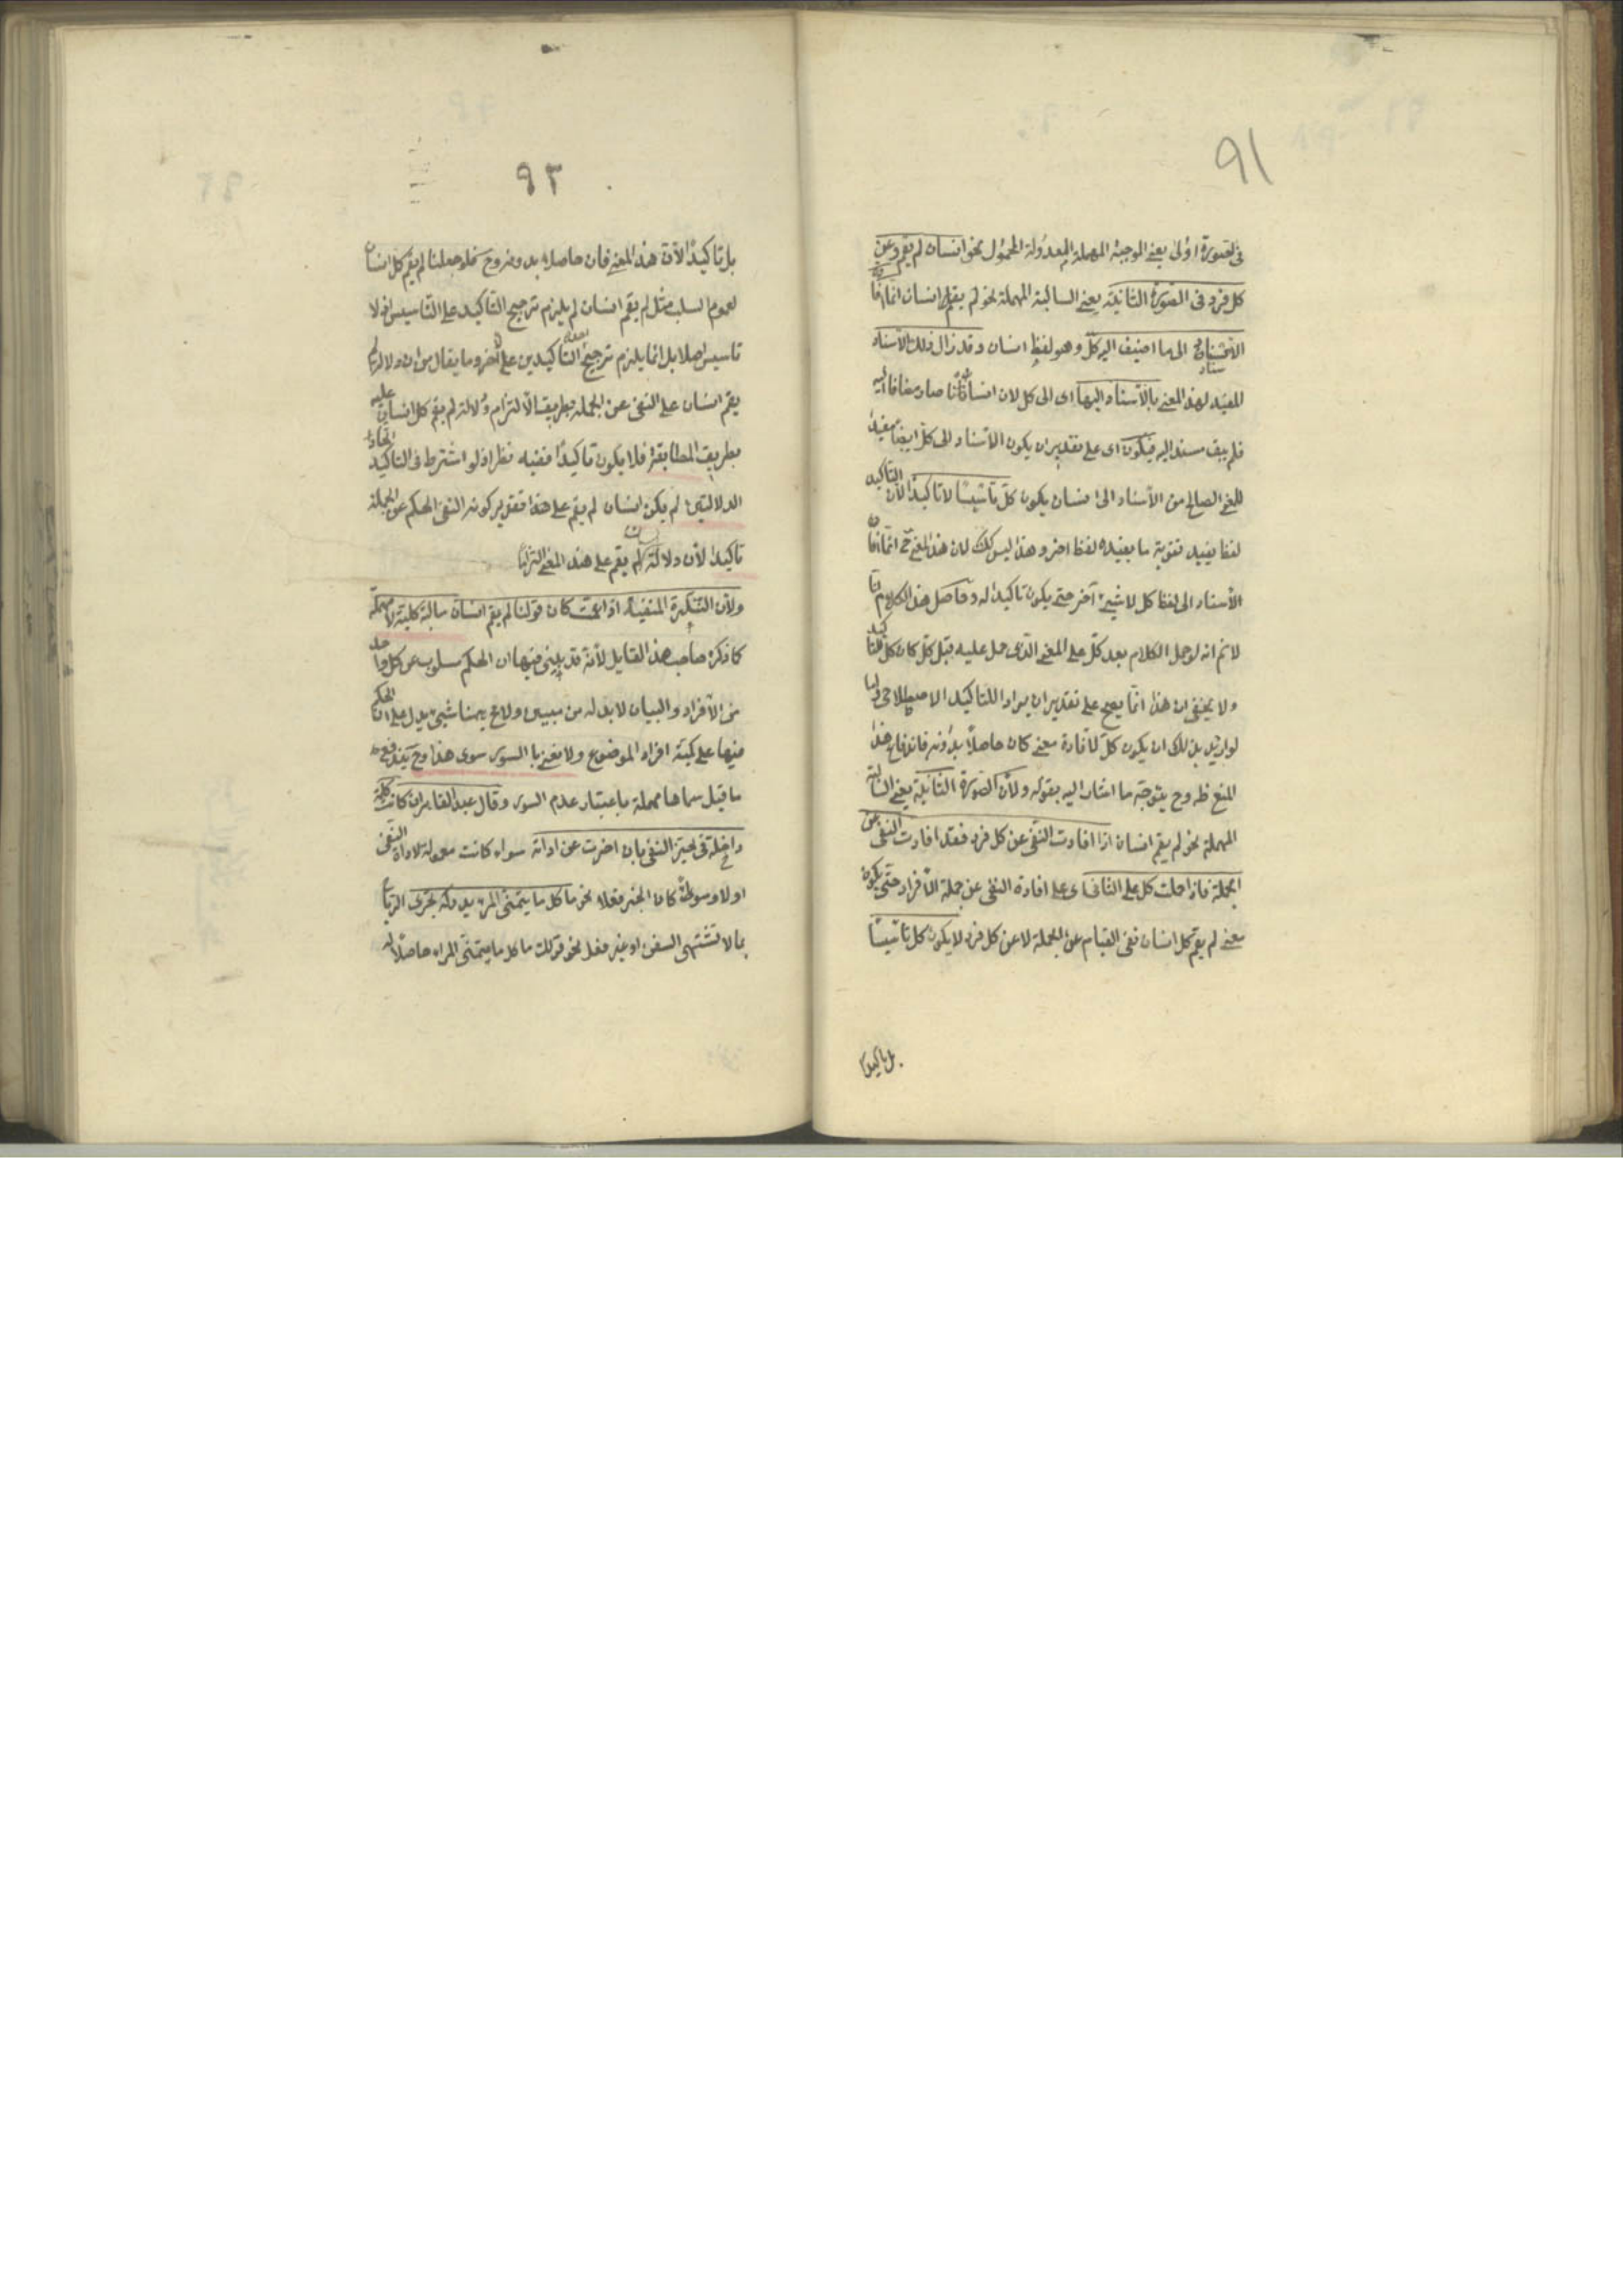 ٩١
فى الصورة اولى يعنى الموجبة المهملة المعدولة المحمول نحو انسان لم يقم وعن
كل فرد فى الصورة الثانية يعنى السالبة المهملة نحو لم يقم انسان انما افا
الاسناد الى ما اضيف اليه كل وهو لفظ انسان وقد زال ذلك الاسناد
المفيد لهذا المعنى بالاسناد اليها اى الى كل لان انسانا صار مضافا اليه
فلم يبق مسندا اليه فيكون اى على تقدير ان يكون الاسناد الى كل ايضا مفيدا
للمعنى الحاصل من الاسناد الى انسان يكون كل تاسيسا لا تاكيدا لان التاكيد
لفظ يفيد تقوية ما يفيده لفظ اخر وهذا ليس كك لان هذا المعنى ح انما افا
الاسناد الى لفظ كل لا شيئ آخر حتى يكون تاكيدا له وحاصل هذا الكلام انا
لا نم انه لو حمل الكلام بعد كل على المعنى الذى حمل عليه قبل كل كان كل تاكيد
ولا يخفى ان هذا انما يصح على تقدير ان يراد التاكيد الاصطلاحى
لو اريد بذلك ان يكون كل لافادة معنى كان حاصلا بدونه فاندفاع هذا
المنع ظ وح يتوجه ما اشار اليه بقوله ولان الصورة الثانية يعنى السالبة
المهملة نحو لم يقم انسان اذا افادت النفى عن كل فرد فقد افادت النفى عن
الجملة فاذا حملت كل على الثانى اى على افادة النفى عن جملة الافراد حتى يكون
معنى لم يقم كل انسان نفى القيام عن الجملة لا عن كل فرد لا يكون كل تاسيسا
بل تاكيدا
٩٢
بل تاكيدا لان هذا المعنى كان حاصلا بدونه وح فلو جعلنا لم يقم كل انسان
لعموم السلب مثل لم يقم انسان لم يلزم ترجيح التاكيد على التاسيس اذ لا
تاسيس اصلا بل انما يلزم ترجيح احد التاكيدين على الاخر وما يقال من ان دلالة لم
يقم انسان على النفى عن الجملة بطريق الالتزام ودلالة لم يقم كل انسان عليه
بطريق المطابقة فلا يكون تاكيدا ففيه نظر اذ لو اشترط فى التاكيد اتحاد
الدلالتين لم يكن انسان لم يقم على هذا تقدير كونه لنفى الحكم عن الجملة
تاكيدا لان دلالة لم يقم على هذا المعنى التزاما
ولان النكرة المنفية اذا عمت كان قولنا لم يقم انسان سالبة كلية لا مهملة
كما ذكره صاحب هذا القايل لانه قد بين فيها ان الحكم مسلوب عن كل واحد
من الافراد والبيان لا بد له من مبين ولا ع يهمنا شيئ يدل على ان الحكم
فيها على كمية افراد الموضوع ولا نعنى با السور سوى هذا وح يندفع
ما قيل سماها مهملة باعتبار عدم السور وقال عبد القاهر ان كانت كلمة
داخلة فى حيز النفى بان اخرت عن اداته سواء كانت معمولة لاداة النفى
اولا وسواء كان الخبر فعلا نحو ما كل ما يتمنى المرء يدركه تجرى الرياح
بما لا تشتهى السفن او غير فعل نحو قولك ما كل ما يتمنى المراء حاصلا له